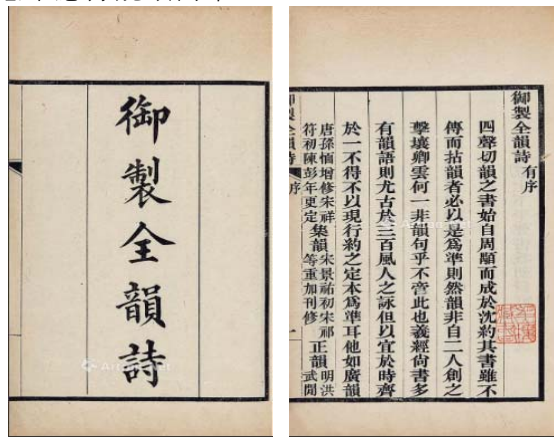 御製全韻詩
御製全韻詩 有序
四聲切韻之書始自周顒而成於沈約其書雖不
傳而拈韻者必以是爲準則然韻非自二人創之
擊壤卿雲何一非韻句乎不啻此也羲經尚書多
有韻語則尤古於三百風人之詠但以宜於時齊
於一不得不以現行約之定本爲準耳他如廣韻
唐孫愐增修宋祥符初陳彭年更定集韻宋景祐初宋祁等重加刊修正韻明洪武間
御製全韻詩 序 一